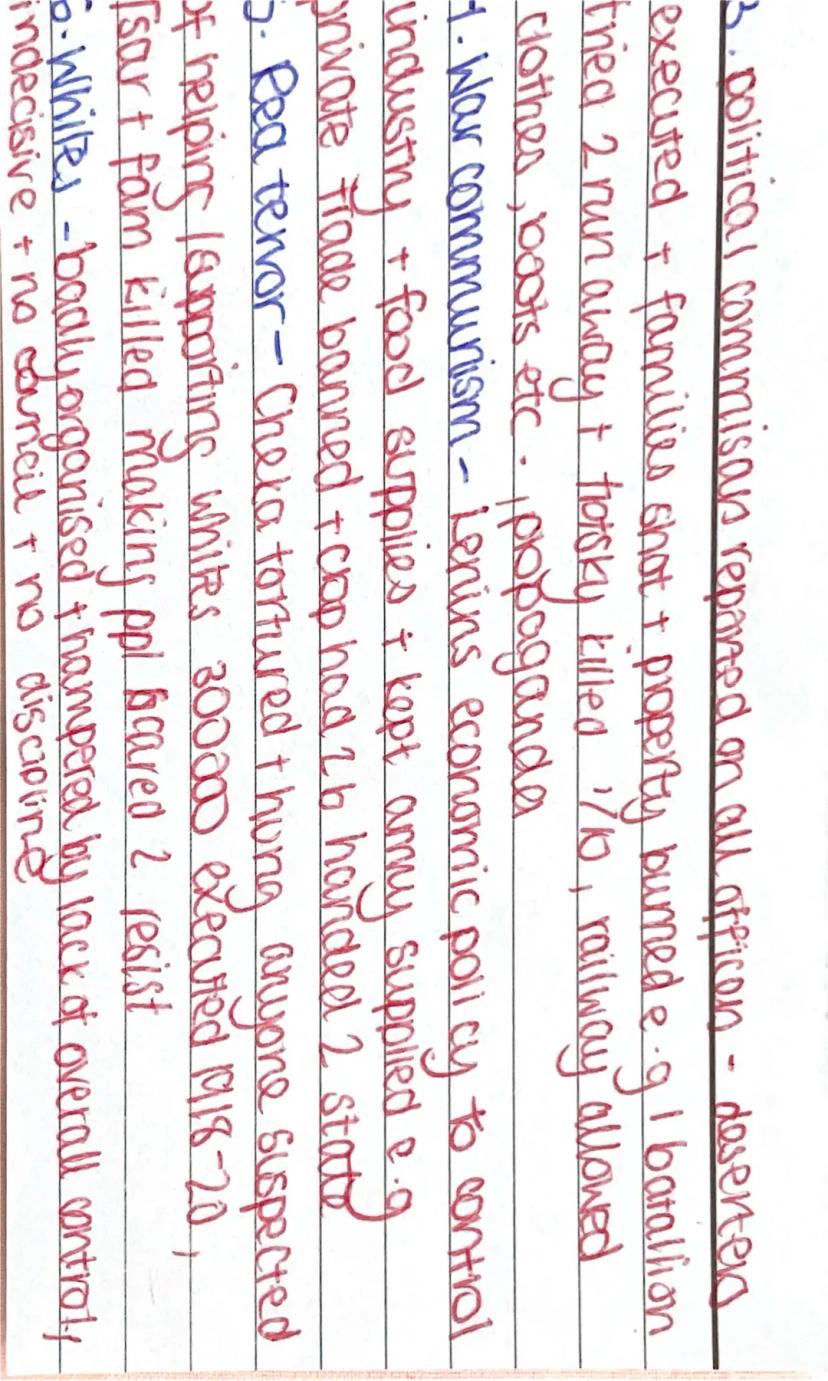 3. political commisars reported on all officers - deserters
executed + families shot + property burned e.g 1 batallion
tried 2 run away + trotsky killed 1/10, railway allowed
clothes, boots etc., propaganda
4. War communism - Lenins economic policy to control
industry + food supplies + kept army supplied e.g
private trade banned + crop had 2 b handed 2 state
5. Red terror - Cheka tortured + hung anyone suspected
of helping / supporting whites 300000 executed 1918-20,
Tsar + fam killed making ppl scared 2 resist
6. Whites - badly organised + hampered by lack of overall control,
indecisive + no council + no discipline